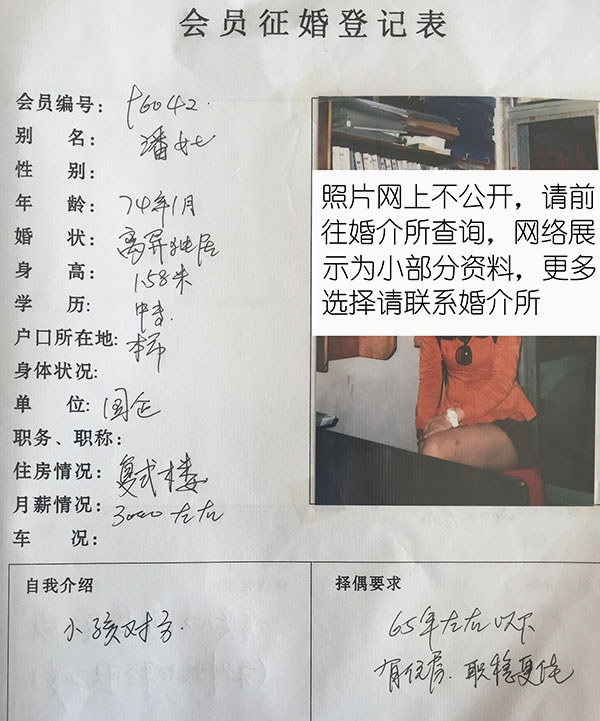 会员征婚登记表
会员编号: f6042.
别 名: 潘女士
性 别:
年 龄: 74年1月
婚 状: 离异独居
身 高: 1.58米
学 历: 中专.
户口所在地: 本市
身体状况:
单 位: 国企
职务、职称:
住房情况: 复式楼
月薪情况: 3000左右
车 况:
照片网上不公开，请前
往婚介所查询，网络展
示为小部分资料，更多
选择请联系婚介所
自我介绍
小孩对方
择偶要求
65年左右以下
有住房、职稳